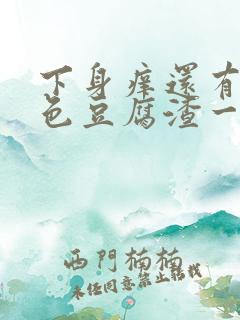 下身痒還有
色豆腐渣一
西門楠楠
未经同意禁止转载